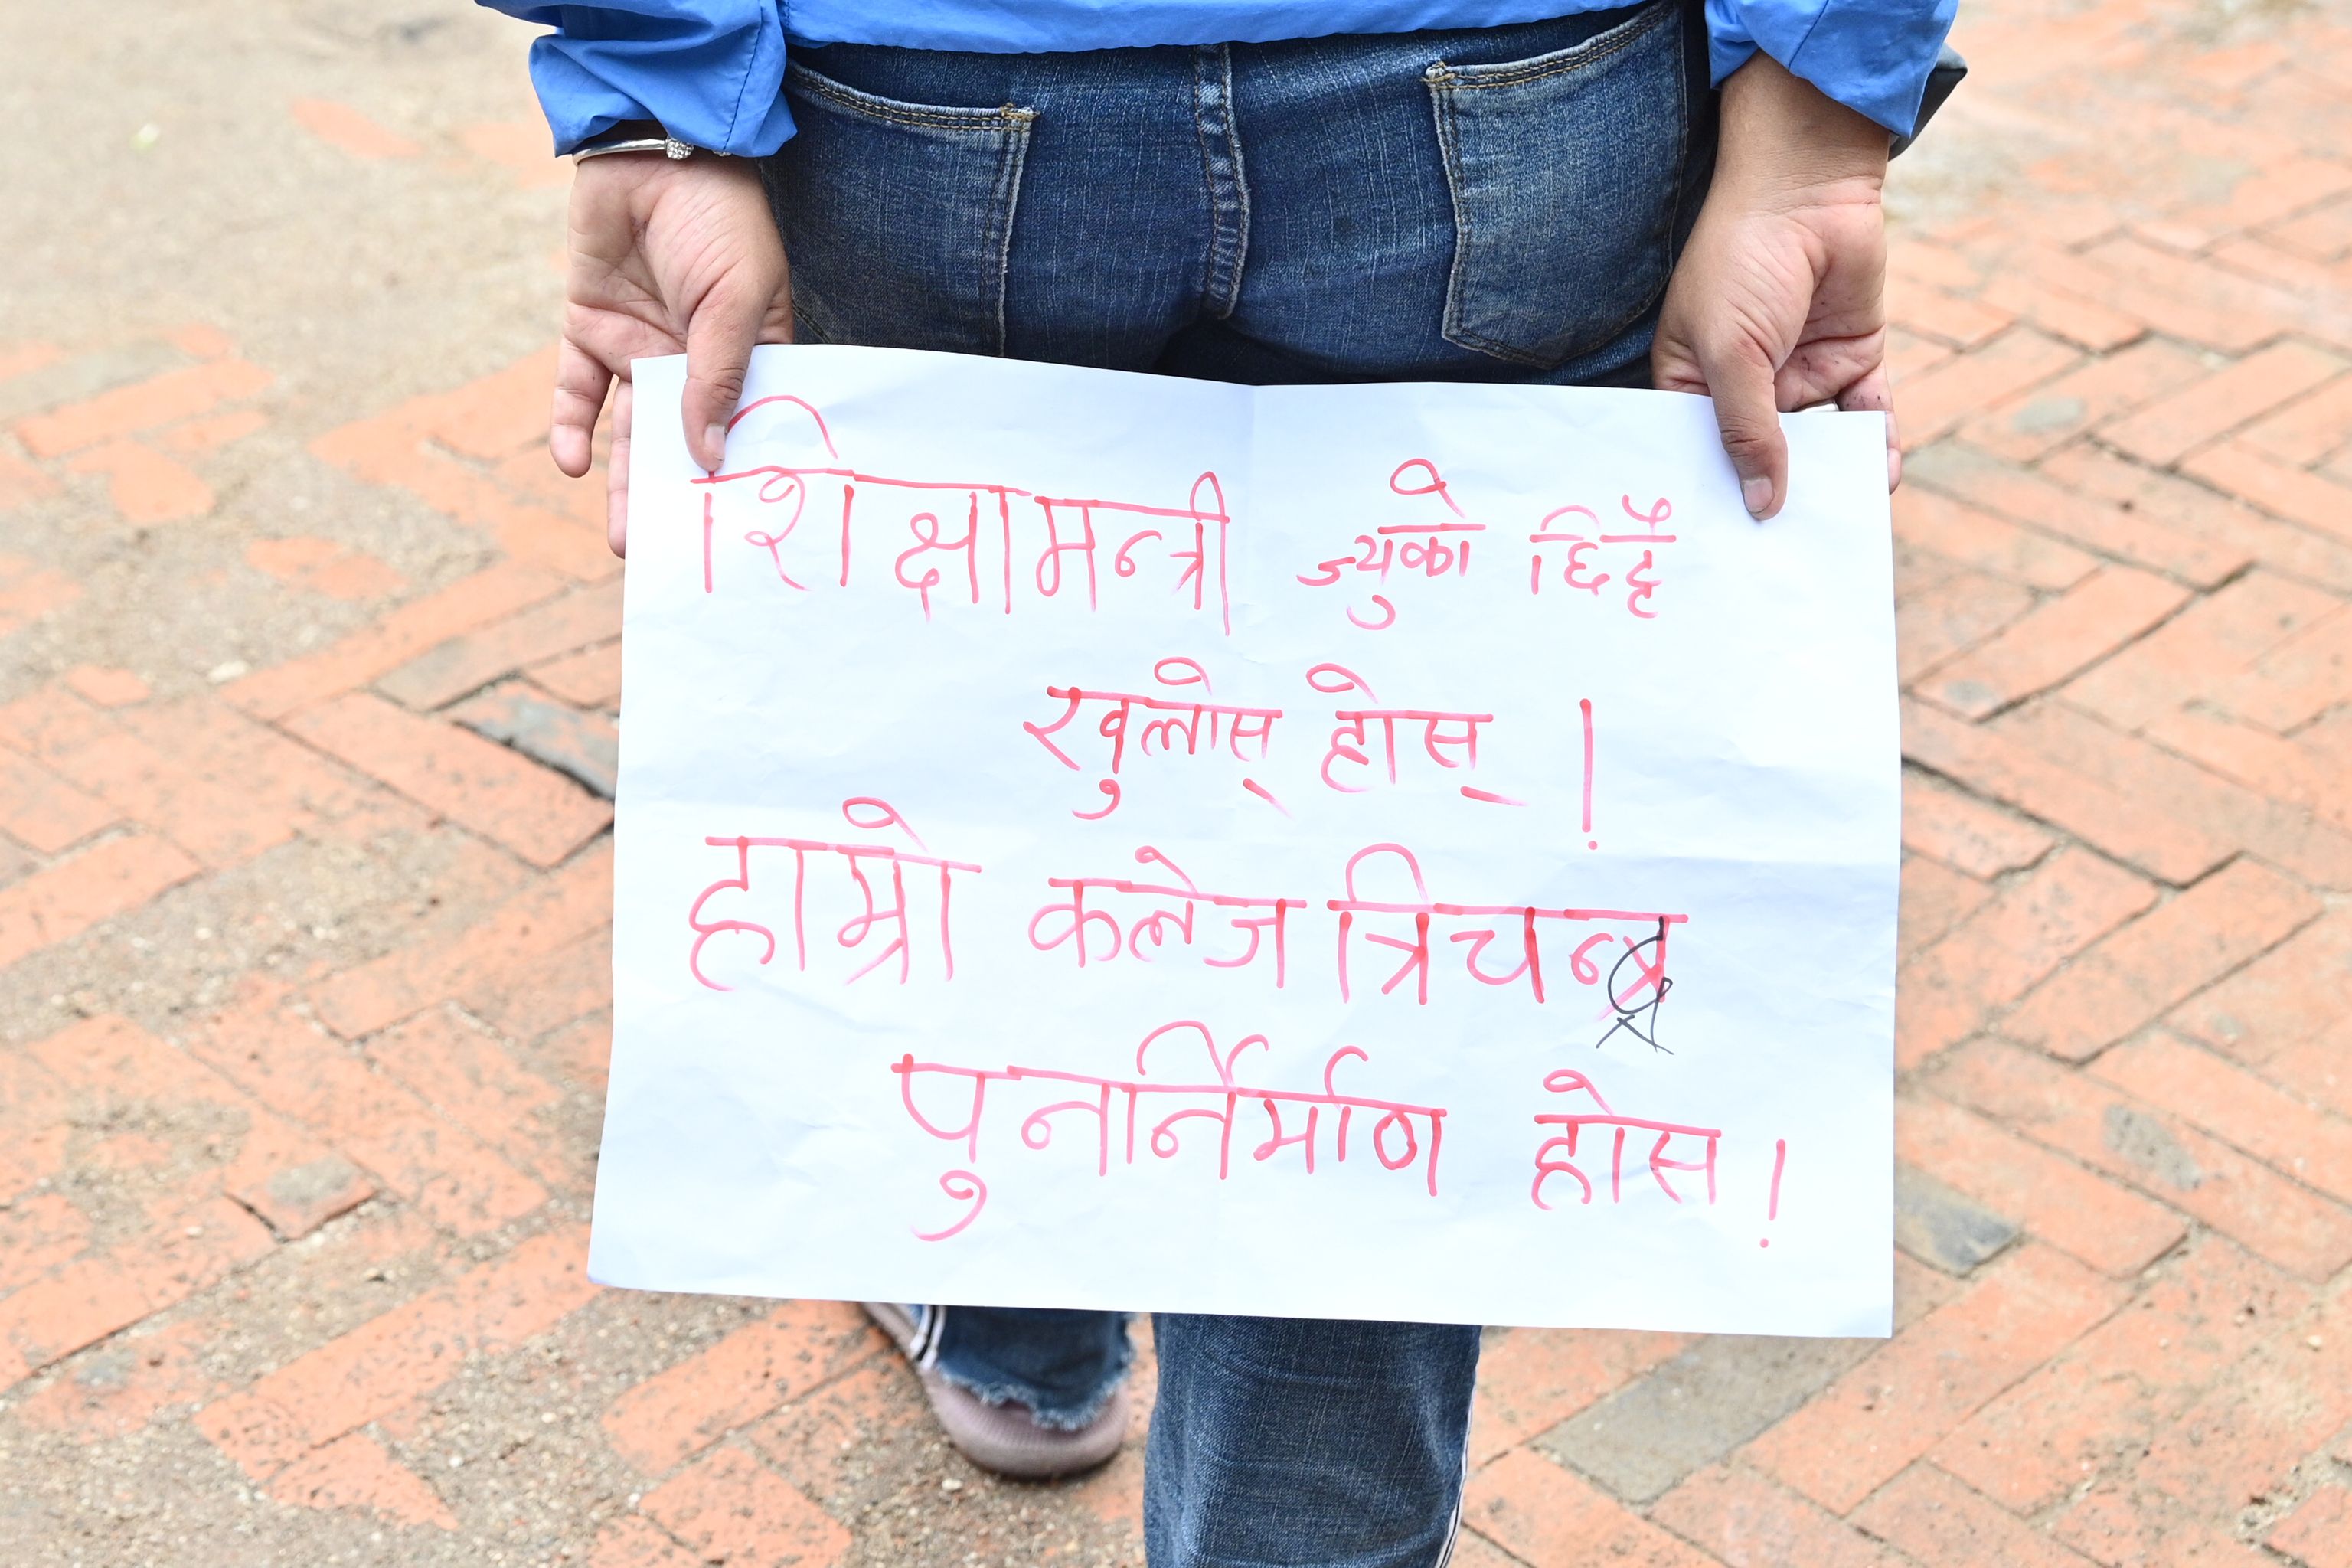 शिक्षामन्त्री ज्युको
खुलोस् होस् !
हाम्रो कलेज त्रिचन्द्र
पुनर्निर्माण होस !